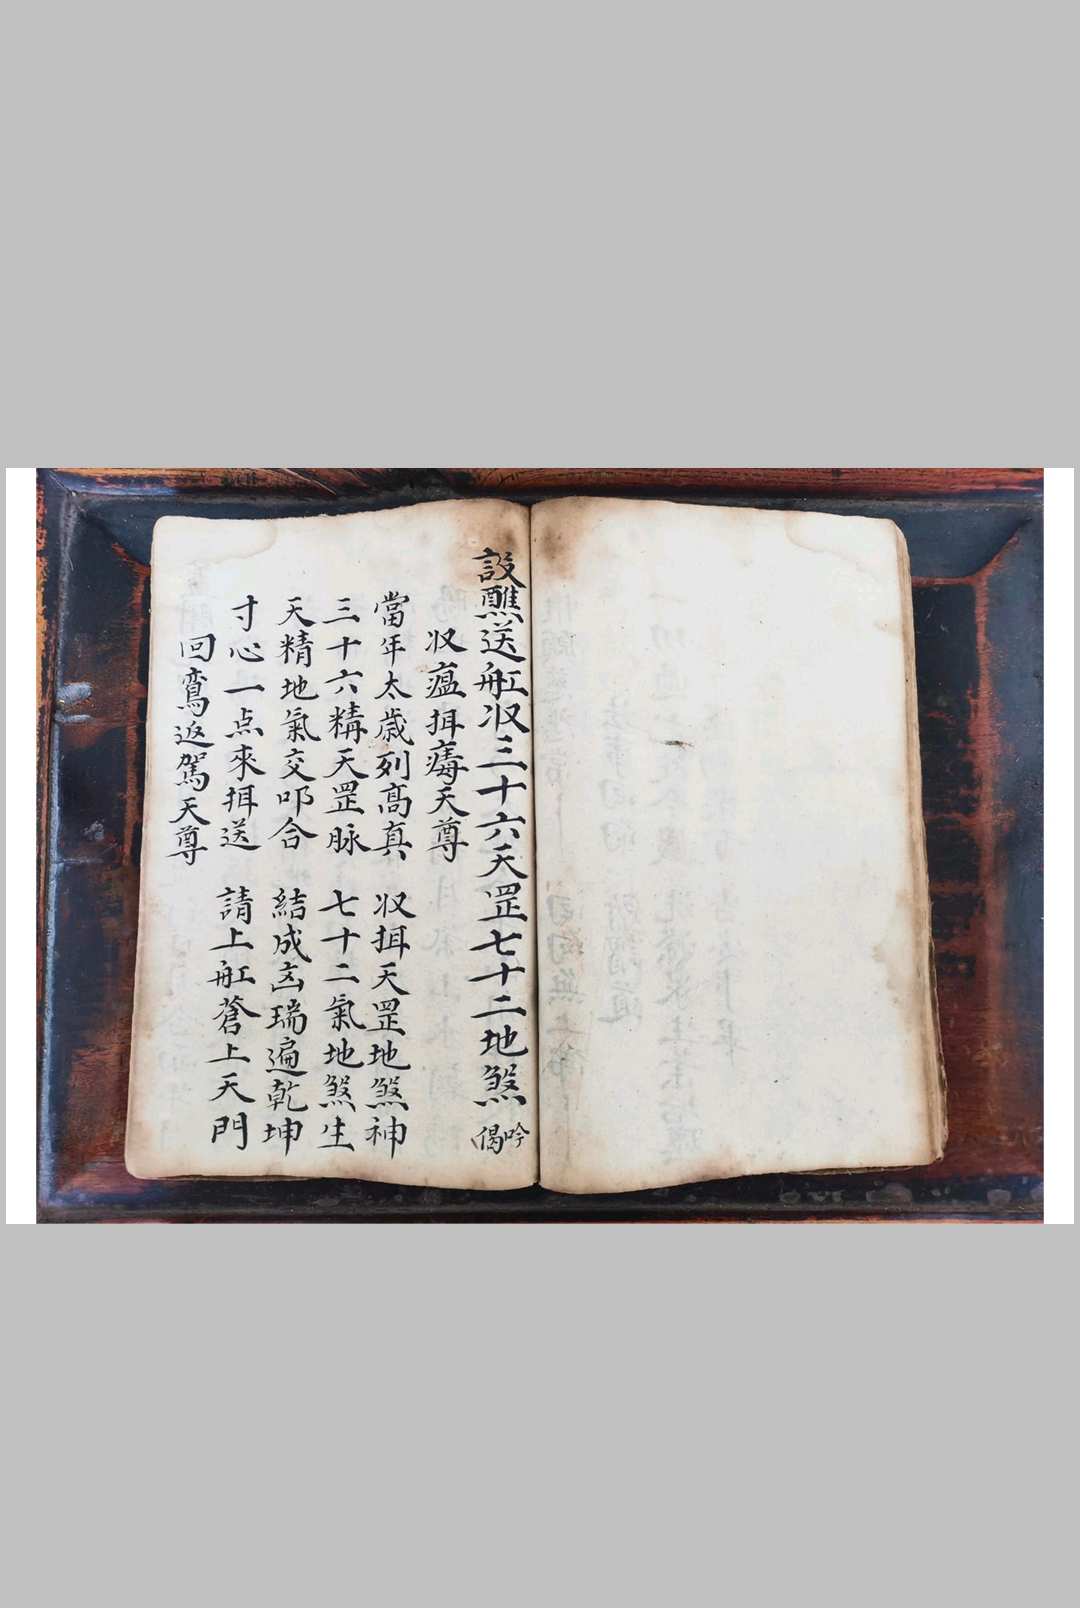 設醮送舡収三十六天罡七十二地煞 吟偈
収瘟揖毒天尊
當年太歲列高真 収揖天罡地煞神
三十六精天罡脉 七十二氣地煞生
天精地氣交叩合 結成凶瑞遍乾坤
寸心一点來揖送 請上舡蒼上天門
回鸞返駕天尊